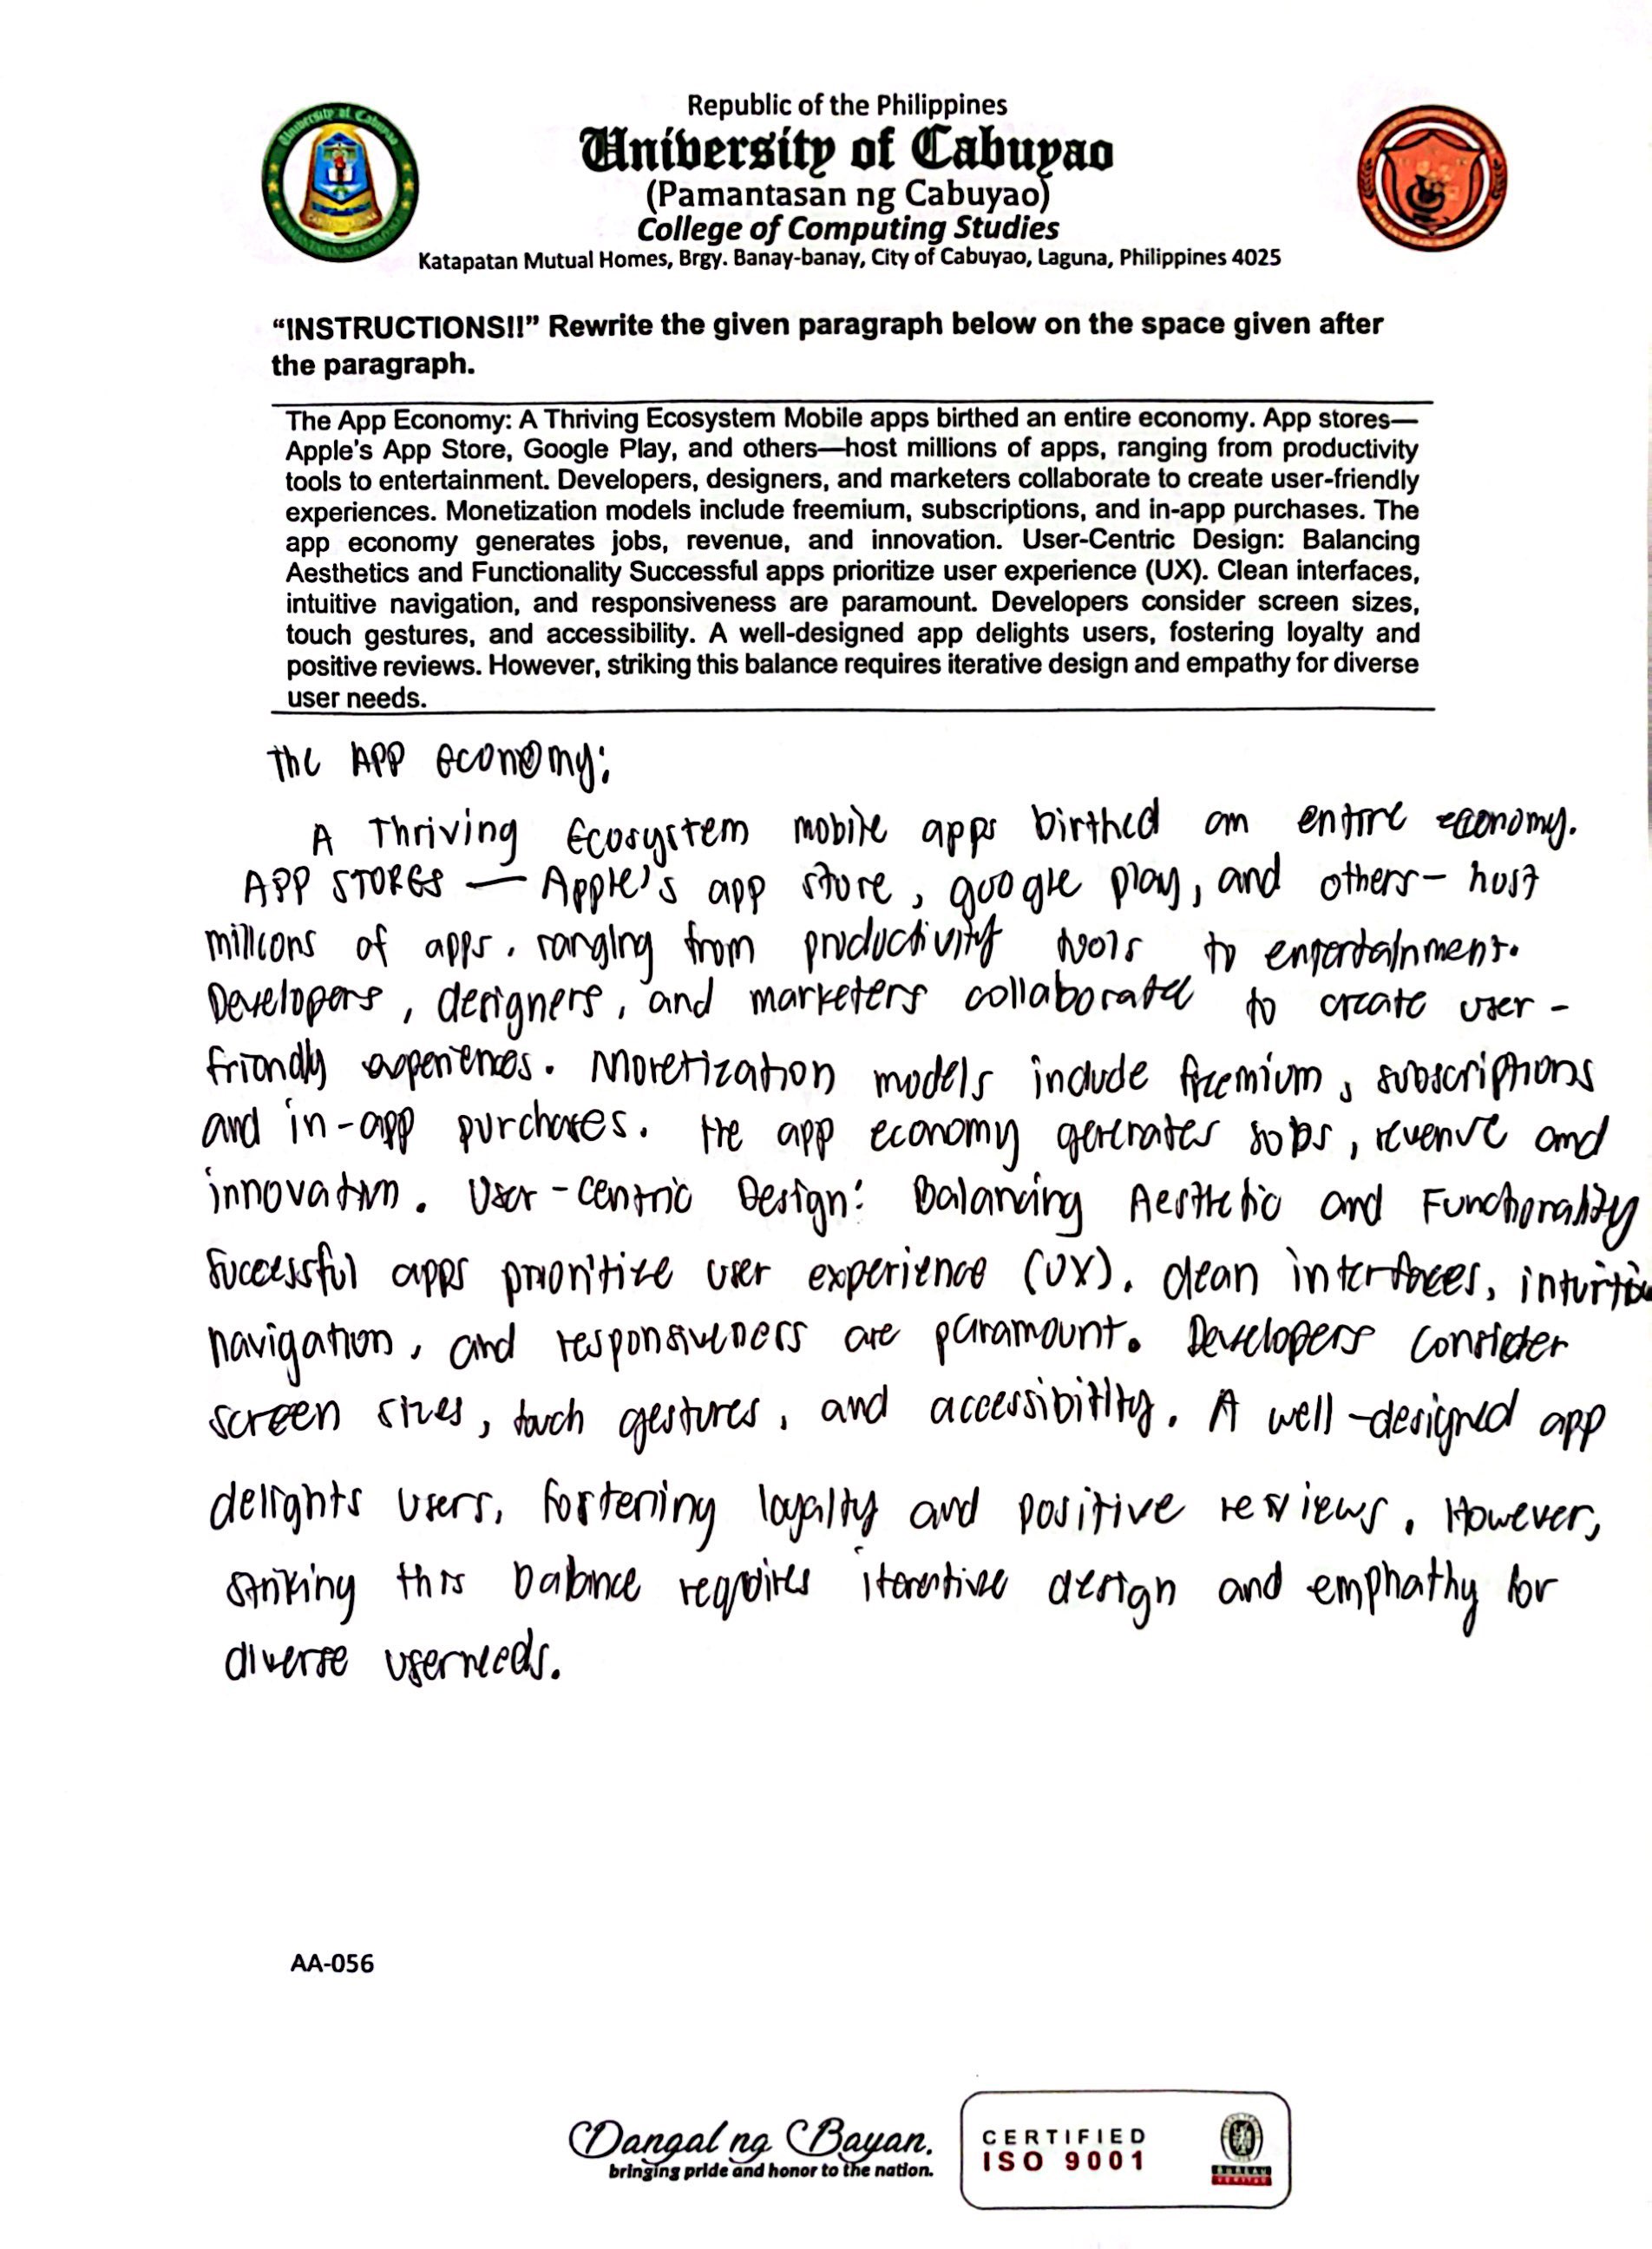 Republic of the Philippines
University of Cabuyao
(Pamantasan ng Cabuyao)
College of Computing Studies
Katapatan Mutual Homes, Brgy. Banay-banay, City of Cabuyao, Laguna, Philippines 4025
“INSTRUCTIONS!!” Rewrite the given paragraph below on the space given after
the paragraph.
The App Economy: A Thriving Ecosystem Mobile apps birthed an entire economy. App stores—
Apple's App Store, Google Play, and others—host millions of apps, ranging from productivity
tools to entertainment. Developers, designers, and marketers collaborate to create user-friendly
experiences. Monetization models include freemium, subscriptions, and in-app purchases. The
app economy generates jobs, revenue, and innovation. User-Centric Design: Balancing
Aesthetics and Functionality Successful apps prioritize user experience (UX). Clean interfaces,
intuitive navigation, and responsiveness are paramount. Developers consider screen sizes,
touch gestures, and accessibility. A well-designed app delights users, fostering loyalty and
positive reviews. However, striking this balance requires iterative design and empathy for diverse
user needs.
The APP economy:
A Thriving Ecosystem mobile apps birthed an entire economy.
APP STORES — Apple's app store, google play, and others - host
millions of apps, ranging from productivity tools to entertainment.
Developers, designers, and marketers collaborate to create user -
friendly experiences. Monetization models include freemium, subscriptions
and in-app purchases. the app economy generates jobs, revenue and
innovation. User-Centric Design: Balancing Aesthetic and Functionality
Successful apps prioritize user experience (UX). clean interfaces, intuitive
navigation, and responsiveness are paramount. Developers consider
screen sizes, touch gestures, and accessibility. A well-designed app
delights users, fostering loyalty and positive reviews. However,
striking this balance requires iterative design and emphathy for
diverse userneeds.
AA-056
Dangal ng Bayan.
bringing pride and honor to the nation.
CERTIFIED
ISO 9001
BUREAU
VERITAS